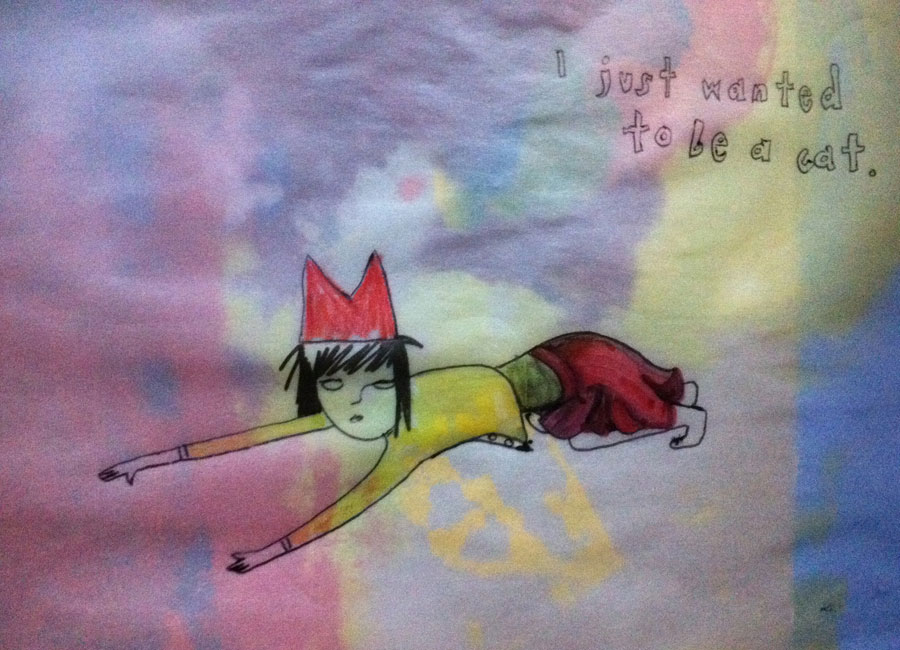 I just wanted
to be a cat.